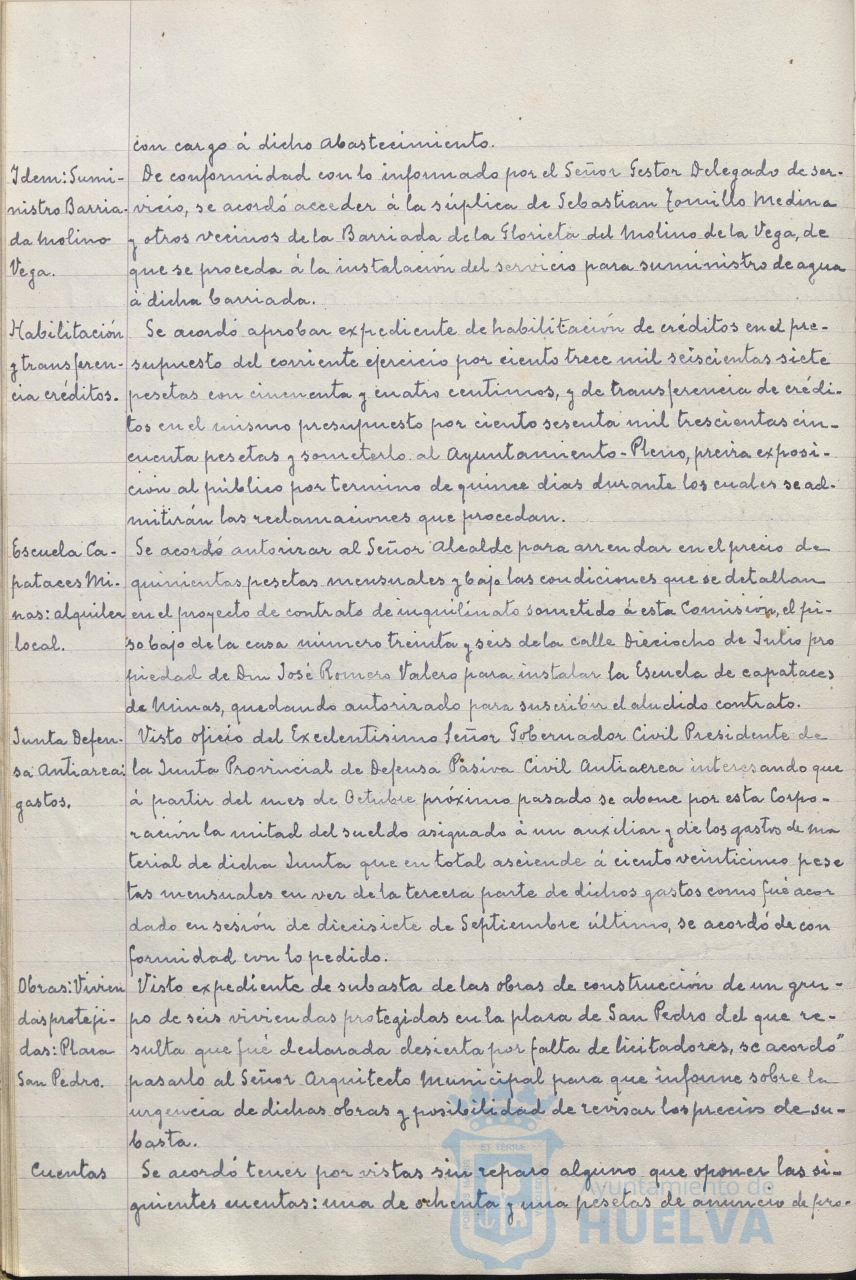 con cargo á dicho Abastecimiento.
Idem: Sumi-
nistro Barria-
da Molino
Vega.
De conformidad con lo informado por el Señor Gestor Delegado de ser-
vicio, se acordó acceder á la súplica de Sebastian Tomillo Medina
y otros vecinos de la Barriada de la Glorieta del Molino de la Vega, de
que se proceda á la instalación del servicio para suministro de agua
á dicha barriada.
Habilitación
y transferen-
cia créditos.
Se acordó aprobar expediente de habilitación de créditos en el pre-
supuesto del corriente ejercicio por ciento trece mil seiscientas siete
pesetas con cincuenta y cuatro centimos, y de transferencia de crédi-
tos en el mismo presupuesto por ciento sesenta mil trescientas cin-
cuenta pesetas y someterlo al Ayuntamiento-Pleno, previa exposi-
ción al público por termino de quince dias durante los cuales se ad-
mitirán las reclamaciones que procedan.
Escuela Ca-
pataces Mi-
nas: alquiler
local.
Se acordó autorizar al Señor Alcalde para arrendar en el precio de
quinientas pesetas mensuales y bajo las condiciones que se detallan
en el proyecto de contrato de inquilinato sometido á esta Comisión, el pi-
so bajo de la casa número treinta y seis de la calle Dieciocho de Julio pro
piedad de Don José Romero Valero para instalar la Escuela de capataces
de Minas, quedando autorizado para suscribir el aludido contrato.
Junta Defen-
sa Antiaerea:
gastos.
Visto oficio del Excelentisimo Señor Gobernador Civil Presidente de
la Junta Provincial de Defensa Pasiva Civil Antiaerea interesando que
á partir del mes de Octubre próximo pasado se abone por esta Corpo-
ración la mitad del sueldo asignado á un auxiliar y de los gastos de ma
terial de dicha Junta que en total asciende á ciento veinticinco pese
tas mensuales en vez de la tercera parte de dichos gastos como fué acor
dado en sesión de diecisiete de Septiembre último, se acordó de con
formidad con lo pedido.
Obras: Vivien
das proteji-
das: Plaza
San Pedro.
Visto expediente de subasta de las obras de construcción de un gru-
po de seis viviendas protegidas en la plaza de San Pedro del que re-
sulta que fué declarada desierta por falta de licitadores, se acordó
pasarlo al Señor Arquitecto Municipal para que informe sobre la
urgencia de dichas obras y posibilidad de revisar los precios de su-
basta.
Cuentas
Se acordó tener por vistas sin reparo alguno que oponer las si-
guientes cuentas: una de ochenta y una pesetas de anuncio de pro-
Ayuntamiento de
HUELVA